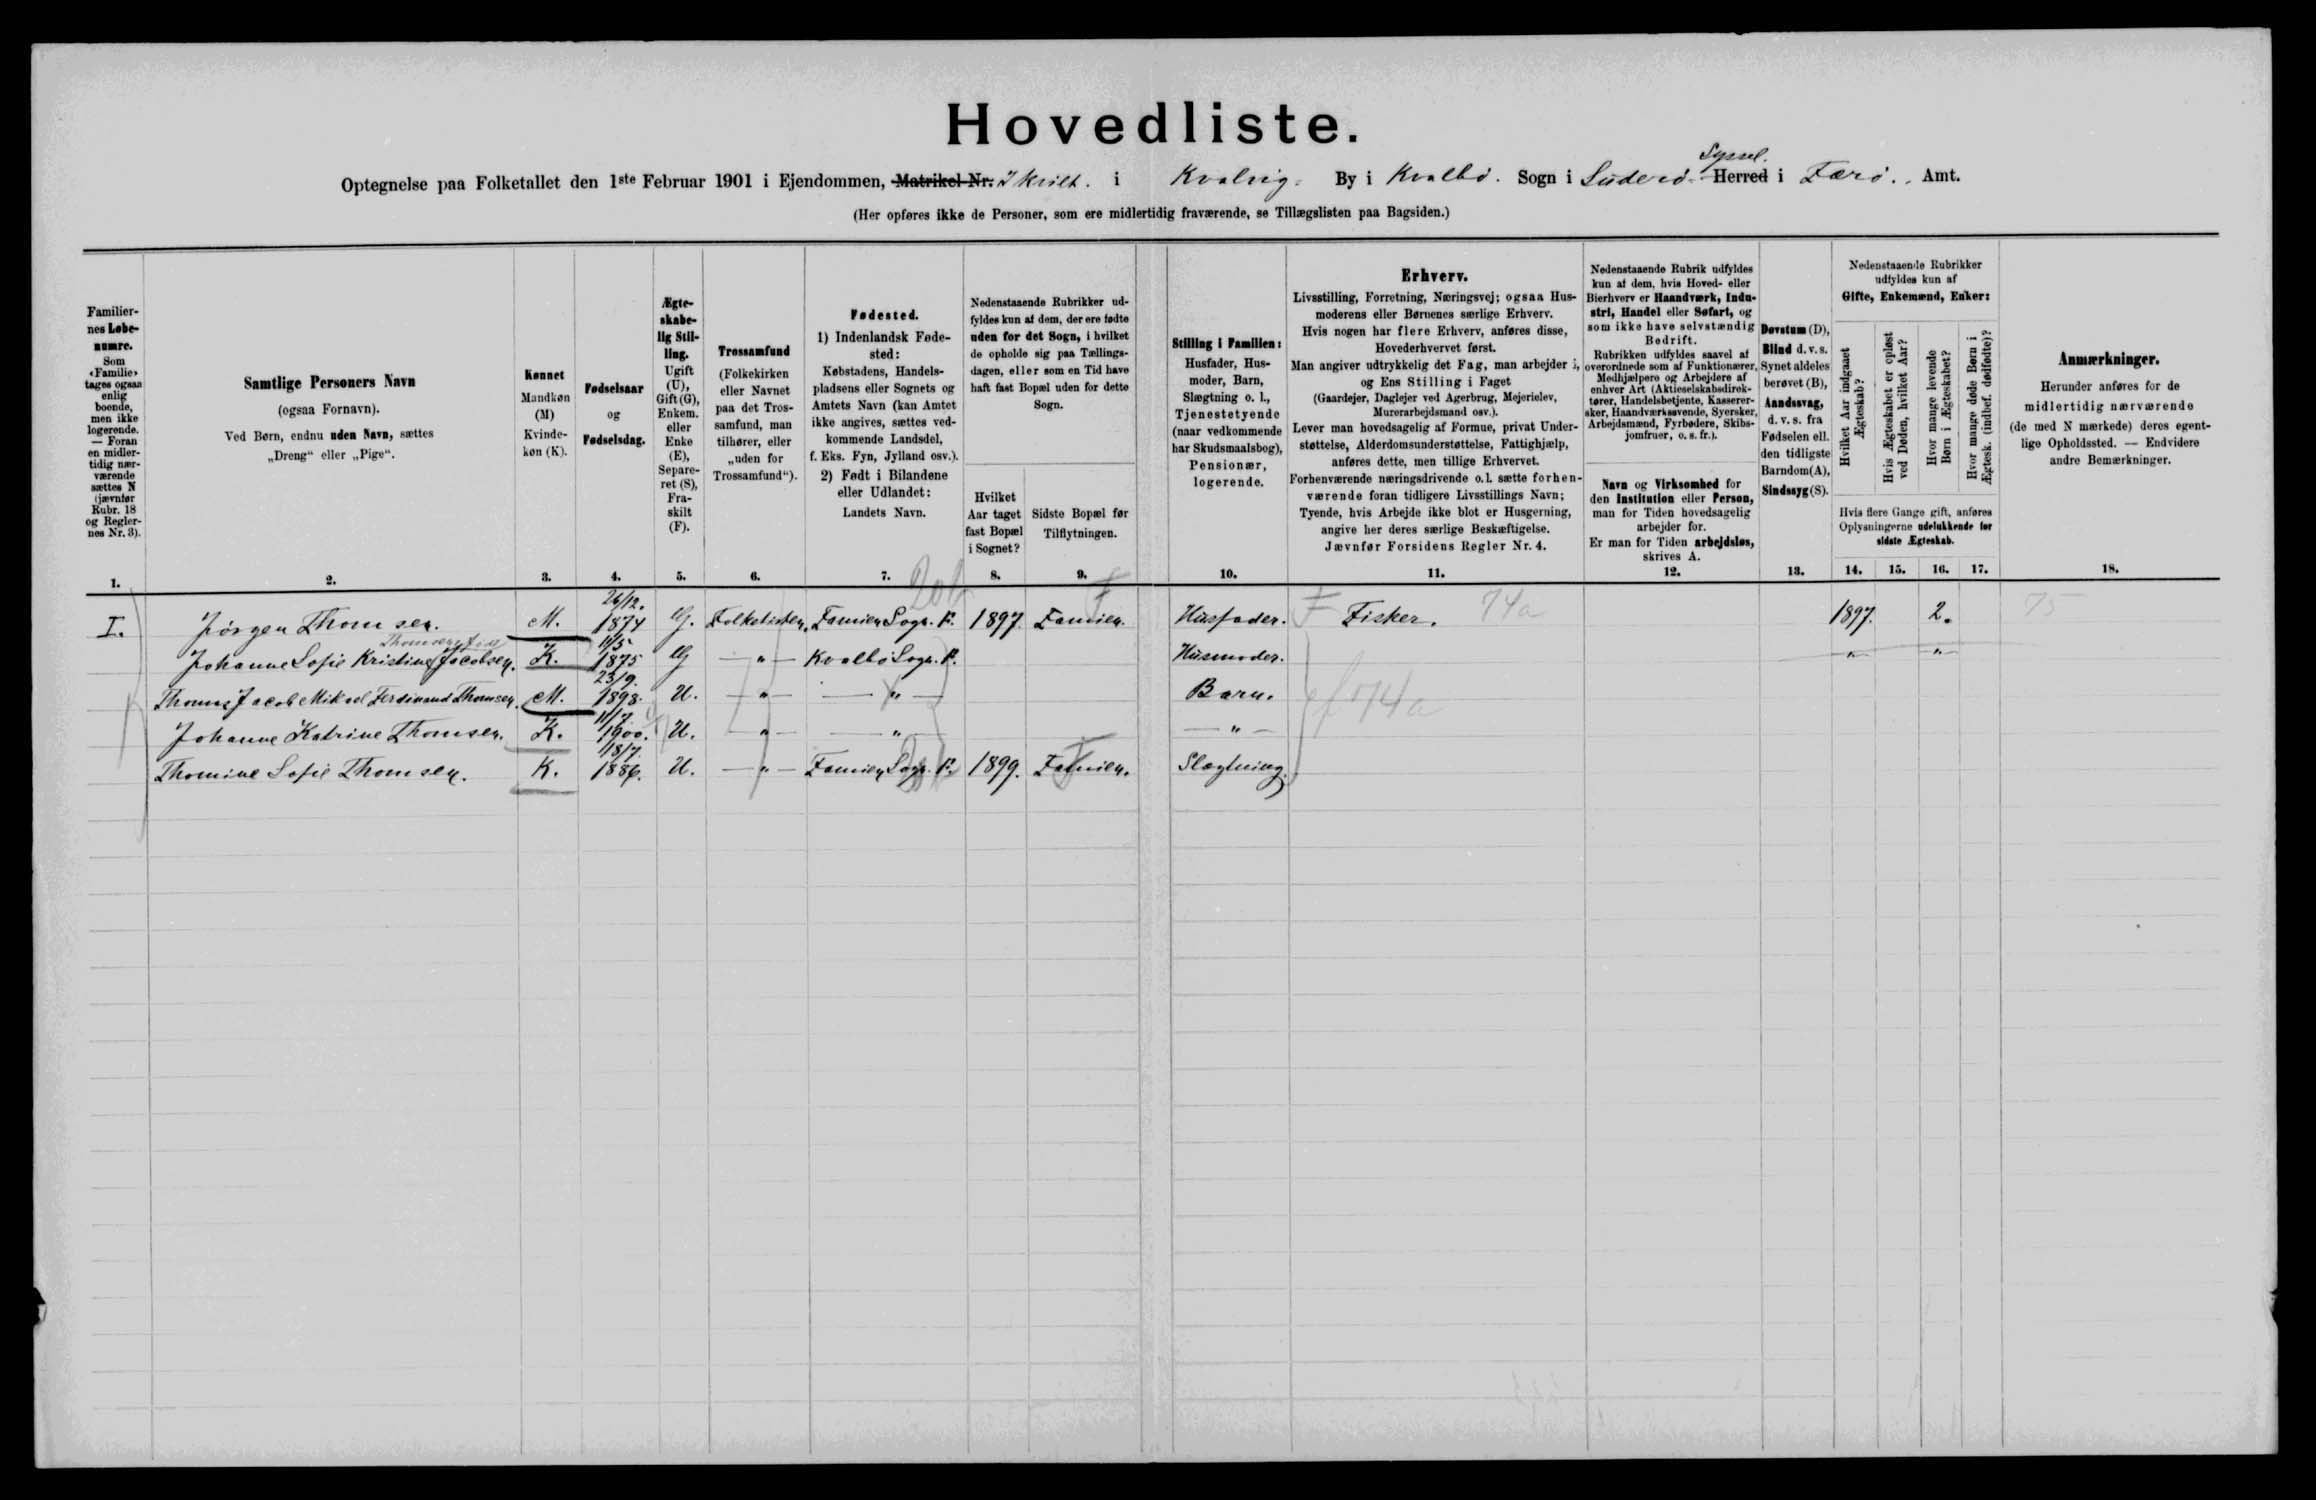 Hovedliste.
Optegnelse paa Folketallet den 1ste Februar 1901 i Ejendommen, Matrikel-Nr. i Kvalvig. By i Kvalbø. Sogn i Suderø. Syssel. Herred i Færø. Amt.
(Her opføres ikke de Personer, som ere midlertidig fraværende, se Tillægslisten paa Bagsiden.)
Familiernes Løbenumre. Som «Familie» tages ogsaa enlig boende, men ikke logerende. — Foran en midlertidig nærværende sættes N (jævnfør Rubr. 18 og Reglernes Nr. 3).
Samtlige Personers Navn
(ogsaa Fornavn).
Ved Børn, endnu uden Navn, sættes
„Dreng“ eller „Pige“.
Kønnet
Mandkøn (M)
Kvindekøn (K).
Fødselsaar
og
Fødselsdag.
Ægteskabelig Stilling.
Ugift (U), Gift (G), Enkem. eller Enke (E), Separeret (S), Fraskilt (F).
Trossamfund
(Folkekirken eller Navnet paa det Trossamfund, man tilhører, eller „uden for Trossamfund“).
Fødested.
1) Indenlandsk Fødested:
Købstadens, Handelspladsens eller Sognets og Amtets Navn (kan Amtet ikke angives, sættes vedkommende Landsdel, f. Eks. Fyn, Jylland osv.).
2) Født i Bilandene eller Udlandet:
Landets Navn.
Nedenstaaende Rubrikker udfyldes kun af dem, der ere fødte uden for det Sogn, i hvilket de opholde sig paa Tællingsdagen, eller som en Tid have haft fast Bopæl uden for dette Sogn.
Hvilket Aar taget fast Bopæl i Sognet?
Sidste Bopæl før Tilflytningen.
Stilling i Familien:
Husfader, Husmoder, Barn, Slægtning o. l., Tjenestetyende (naar vedkommende har Skudsmaalsbog), Pensionær, logerende.
Erhverv.
Livsstilling, Forretning, Næringsvej; ogsaa Husmoderens eller Børnenes særlige Erhverv.
Hvis nogen har flere Erhverv, anføres disse, Hovederhvervet først.
Man angiver udtrykkelig det Fag, man arbejder i, og Ens Stilling i Faget
(Gaardejer, Daglejer ved Agerbrug, Mejerielev, Murerarbejdsmand osv.).
Lever man hovedsagelig af Formue, privat Understøttelse, Alderdomsunderstøttelse, Fattighjælp, anføres dette, men tillige Erhvervet.
Forhenværende næringsdrivende o. l. sætte forhenværende foran tidligere Livsstillings Navn;
Tyende, hvis Arbejde ikke blot er Husgerning, angive her deres særlige Beskæftigelse.
Jævnfør Forsidens Regler Nr. 4.
Nedenstaaende Rubrik udfyldes kun af dem, hvis Hoved- eller Bierhverv er Haandværk, Industri, Handel eller Søfart, og som ikke have selvstændig Bedrift.
Rubrikken udfyldes saavel af overordnede som af Funktionærer, Medhjælpere og Arbejdere af enhver Art (Aktieselskabsdirektører, Handelsbetjente, Kasserersker, Haandværkssvende, Syersker, Arbejdsmænd, Fyrbødere, Skibsjomfruer, o. s. fr.).
Navn og Virksomhed for den Institution eller Person, man for Tiden hovedsagelig arbejder for.
Er man for Tiden arbejdsløs, skrives A.
Døvstum (D), Blind d. v. s. Synet aldeles berøvet (B), Aandssvag, d. v. s. fra Fødselen ell. den tidligste Barndom (A), Sindssyg (S).
Nedenstaaende Rubrikker udfyldes kun af
Gifte, Enkemænd, Enker:
Hvilket Aar indgaaet Ægteskab?
Hvis Ægteskabet er opløst ved Døden, hvilket Aar?
Hvor mange levende Børn i Ægteskabet?
Hvor mange døde Børn i Ægtesk. (indbef. dødfødte)?
Hvis flere Gange gift, anføres Oplysningerne udelukkende for sidste Ægteskab.
Anmærkninger.
Herunder anføres for de midlertidig nærværende (de med N mærkede) deres egentlige Opholdssted. — Endvidere andre Bemærkninger.
1. 2. 3. 4. 5. 6. 7. 8. 9. 10. 11. 12. 13. 14. 15. 16. 17. 18.
I. Jørgen Thomsen. M. 26/12. 1874 G. Folkekirken. Famien Sogn. F. 1897. Famien. Husfader. F Fisker. 74a 1897. 2. 75
Johanne Sofie Kristine Jacobsen. K. 11/5 1875 G — " — Kvalbø Sogn. F. Husmoder. " "
Thomas Jacob Mikael Ferdinand Thomsen. M. 23/9. 1898. U. — " — — " — Barn. f 74a
Johanne Katrine Thomsen. K. 11/7. 1900. U. — " — — " — — " —
Thomine Sofie Thomsen. K. 18/7. 1886. U. — " — Famien Sogn. F. 1899. Famien. Slægtning.